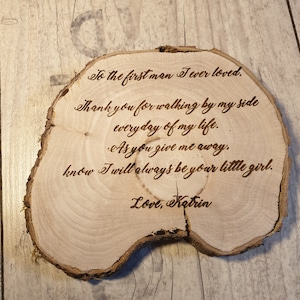 To the first man I ever loved.
Thank you for walking by my side
everyday of my life.
As you give me away,
know I will always be your little girl.
Love, Katrin